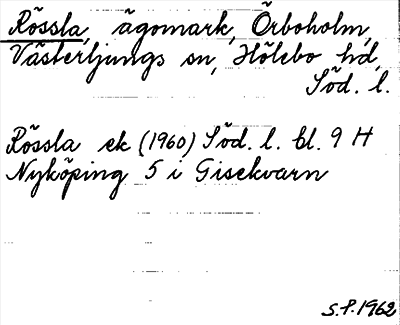 Rössla, ägomark, Örboholm,
Västerljungs sn, Hölebo hd,
Söd. l.
Rössla ek (1960) Söd. l. bl. 9 H
Nyköping 5 i Gisekvarn
S.P. 1962